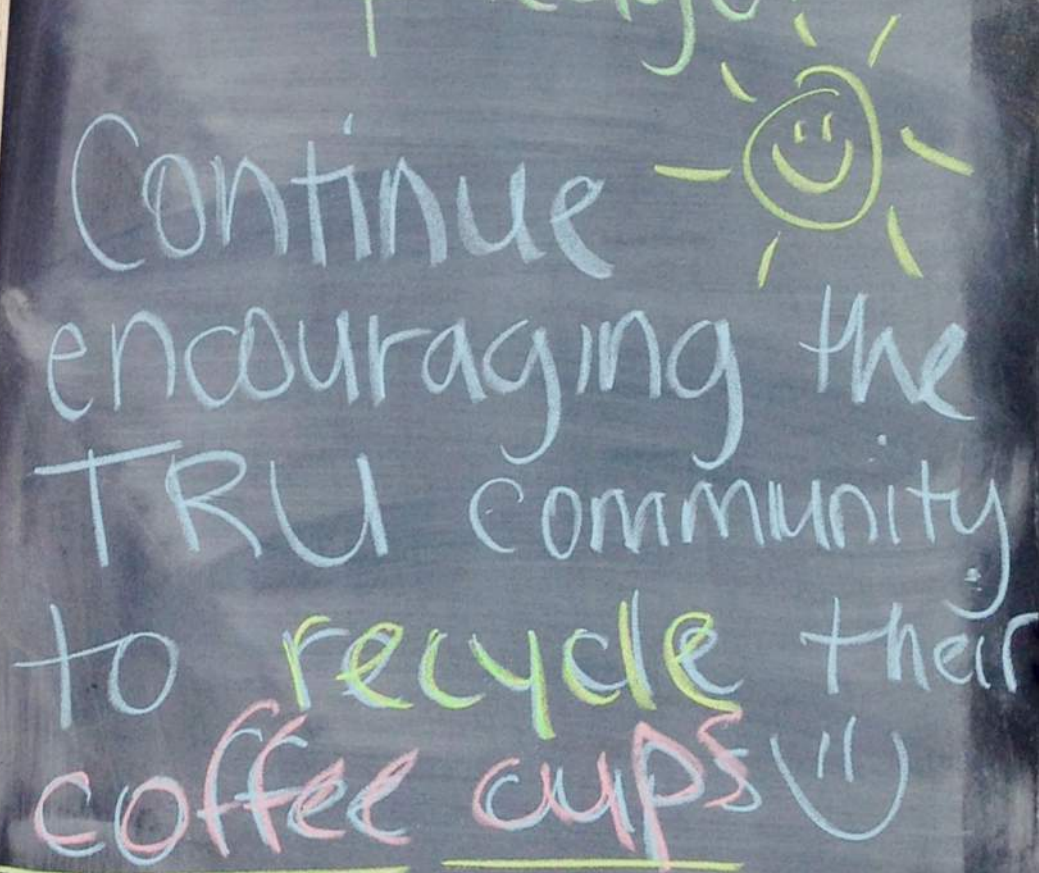 Continue
encouraging the
TRU community
to recycle their
coffee cups